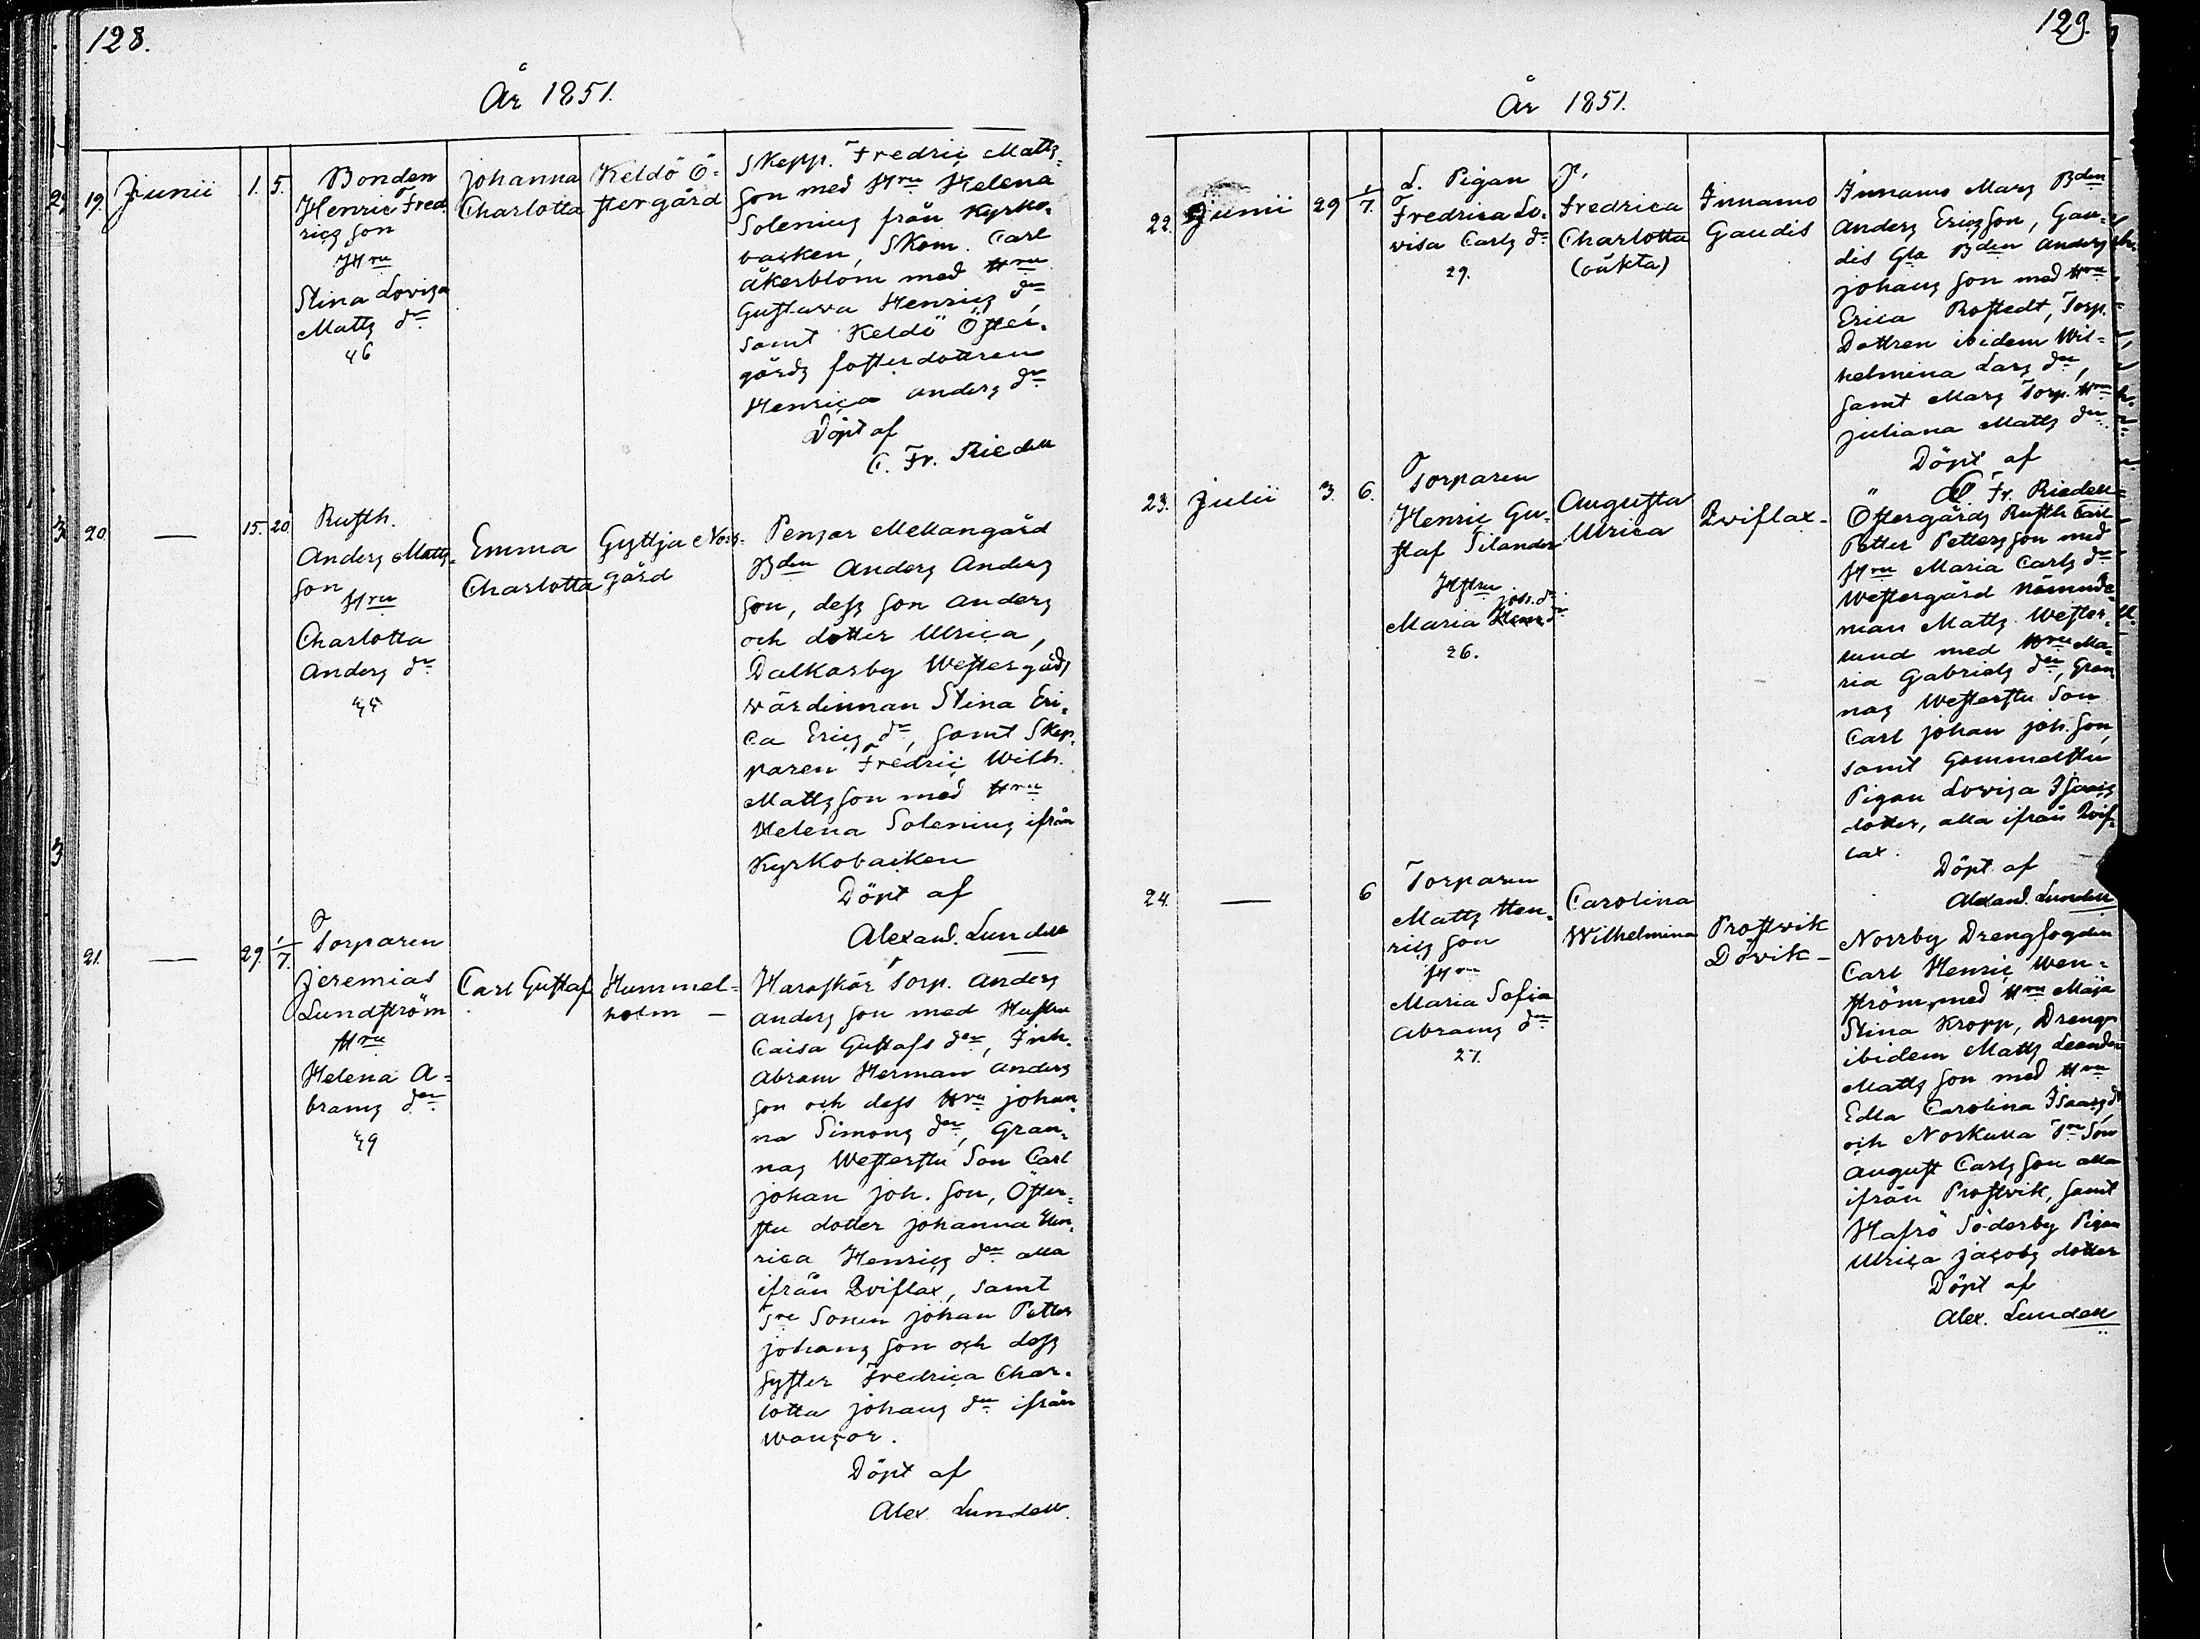 128.
År 1851.
19. Junii 1. 5.
Bonden
Henric Fred
rics son
Hru
Stina Lovisa
Matts dr
46
Johanna
Charlotta
Keldö Ö-
stergård
Skepp. Fredric Matts
son med Hru Helena
Solenius från Kyrko-
backen, Skom. Carl
Åkerblom med Hru
Gustava Henrics dr
samt Keldö Öster-
gårds fosterdottren
Henrica Anders dr
Döpt af
C. Fr. Riedell
20. — 15. 20.
Rusth.
Anders Matts
son Hru
Charlotta
Anders dr
Emma
Charlotta
Gyttja Norr-
gård
Pensar Mellangård
Bden Anders Anders
son, dess son Anders
och dotter Ulrica,
Dalkarby Westergårds
värdinnan Stina Eri-
ca Erics dr, samt Skep-
paren Fredric Wilh.
Mattsson med Hru
Helena Solenius, ifrån
Kyrkobacken
Döpt af
Alexand. Lundell
21. — 29. 1/7.
Torparen
Jeremias
Lundström
Hru
Helena A-
brams dr
49
Carl Gustaf
Hummel-
holm —
Haraskär Torp. Anders
Anders son med Hustru
Caisa Gustafs dr, Inh.
Abram Herman Anders
son och dess Hru Johan-
na Simons dr, Gran-
nas Westerstu Son Carl
Johan Joh. son, Öster-
stu dotter Johanna Hen-
rica Henrics dr alla
ifrån Qviflax, samt
Sonen Johan Petter
Johans son och dess
syster Fredrica Char-
lotta Johans dr ifrån
Wansor.
Döpt af
Alex Lundell.
129.
År 1851.
22. Junii 29 1/7.
L. Pigan
Fredrica Lo-
visa Carls dr
29.
Fredrica
Charlotta
(oäkta)
Innamo
Gaudis
Innamo Mars Bden
Anders Ericsson, Gau-
dis Gla Bden Anders
Johans son med Hru
Erica Rostedt, Torp.
Dottren ibidem Wil-
helmina Lars dr,
samt Mars Torp. Hru
Juliana Matts dr
Döpt af
C Fr. Riedell
23. Julii 3. 6.
Torparen
Henric Gu-
staf Silander
Hstru
Joh. dr
Maria
26.
Augusta
Ulrica
Qviflax-
Östergårds Rusth Carl
Petter Pettersson med
Hru Maria Carls dr
Westergård Nämnde-
man Matts Wester-
lund med Hru Ma-
ria Gabriels dr, Gran
nas Westerstu Son
Carl Johan Joh. son,
samt Gammelstu
Pigan Lovisa Isaacs
dotter, alla ifrån Qvif-
lax.
Döpt af
Alexand. Lundell
24. — 6
Torparen
Matts Hen-
rics son
Hru
Maria Sofia
Abrams dr
27.
Carolina
Wilhelmina
Prostvik
Dövik —
Norrby Drengfogden
Carl Henric Wen-
ström med Hru Maja
Stina Kropp, Drengen
ibidem Matts Leander
Matts son med Hru
Edla Carolina Isaacs dr
och Norkulla Son
August Carls son alla
ifrån Prostvik, samt
Hafrö Söderby Pigan
Ulrica Jacobs dotter
Döpt af
Alex. Lundell